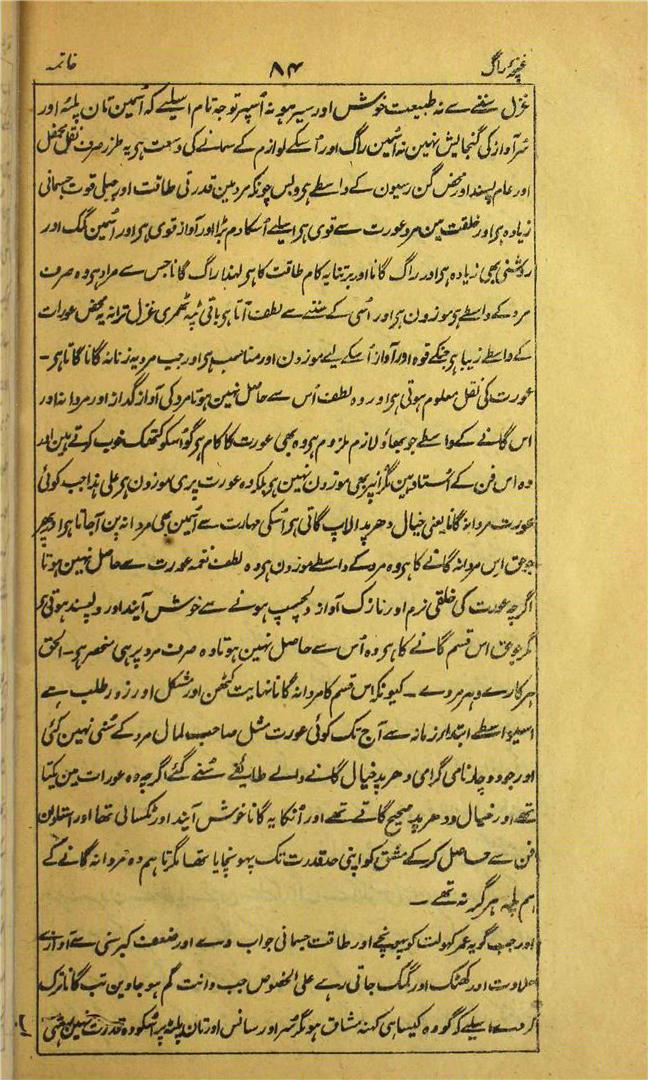 غنچۂ راگ ۸۴ خاتمہ
غزل سننے سے نہ طبیعت خوش اور سیر ہو نہ اُسپر توجہ تام اسلیے کہ اُسمین تان پلٹہ اور
سُر آواز کی گنجایش نہین نہ اُسمین راگ اور اُسکے لوازم کے سمانے کی وسعت ہی یہ طرز صرف نقل محفل
اور عام پسند اور محض گن رسیون کے واسطے ہی وبس چونکہ مرد مین قدرتی طاقت اور جبلی قوت جسمانی
زیادہ ہی اور خلقت مین مرد عورت سے قوی ہی اسلیے اُسکا دم بڑا اور آواز قوی ہی اور اُسمین گمک اور
روشنی بھی زیادہ ہی اور راگ گانا اور برتنا یہ کام طاقت کا ہی لہذا راگ گانا جس سے مراد ہی وہ صرف
مرد کے واسطے ہی موزون ہی اور اُسی کے سننے سے لطف آتا ہی باقی ٹپہ ٹھمری غزل ترانہ یہ محض عورات
کے واسطے زیبا ہی جنکے قوہ اور آواز اُسکے لیے موزون اور مناسب ہی اور جب مرد یہ زنانہ گانا گاتا ہی ۔
عورت کی نقل معلوم ہوتی ہی اور وہ لطف اُس سے حاصل نہین ہوتا مرد کی آواز گداز اور مردانہ اور
اس گانے کے واسطے جو بھاؤ لازم ملزوم ہی وہ بھی عورت کا کام ہی گو اُسکو کتھک خوب کرتے ہین اور
وہ اس فن کے اُستاد ہین مگر اُنپر بھی موزون نہین ہی بلکہ وہ عورت پر ہی موزون ہی علی ہذا جب کوئی
عورت مردانہ گانا یعنی خیال دھرپد الاپ گاتی ہی اُسکی مہارت سے اُسمین بھی مردانہ پن آجاتا ہی اور پھر
جو حق اس مردانہ گانے کا ہی وہ مرد کے واسطے موزون ہی وہ لطف نغمہ عورت سے حاصل نہین ہوتا
اگرچہ عورت کی خلقی نرم اور نازک آواز دلچسپ ہونے سے خوش آیند اور دلپسند ہوتی ہی
مگر جو حق اس قسم گانے کا ہی وہ اُس سے حاصل نہین ہوتا وہ صرف مرد پر ہی منحصر ہی ۔ الحق
ہر کارے و ہر مردے ۔ کیونکہ اس قسم کا مردانہ گانا نہایت کٹھن اور مشکل اور زور طلب ہے
اسیواسطے ابتداء زمانہ سے آج تک کوئی عورت مثل صاحب کمال مرد کے سُنی نہین گئی
اور جو دو چار نامی گرامی دھرپد خیال گانے والے طایفے سُنے گئے اگرچہ وہ عورات مین یکتا
تھے اور خیال و دھرپد صحیح گاتے تھے اور اُنکا یہ گانا خوش آیند اور ٹکسالی تھا اور استادین
فن سے حاصل کرکے مشق کو اپنی حد قدرت تک پہونچایا تھا مگر تاہم وہ مردانہ گانے کے
ہم پلہ ہرگز نہ تھے ۔
اور جب گویہ عمر کہولت کو پہونچے اور طاقت جسمانی جواب دے اور ضعف کبرسنی سے آواز سے
حلاوت اور کھٹک اور گمک جاتی رہے علی الخصوص جب دانت گم ہو جاوین تب گانا ترک
کر دے اسلیے کہ گو وہ کیسا ہی کہنہ مشاق ہو مگر سُر اور سانس اور تان پلٹہ پر اُسکو وہ قدرت نہین رہتی